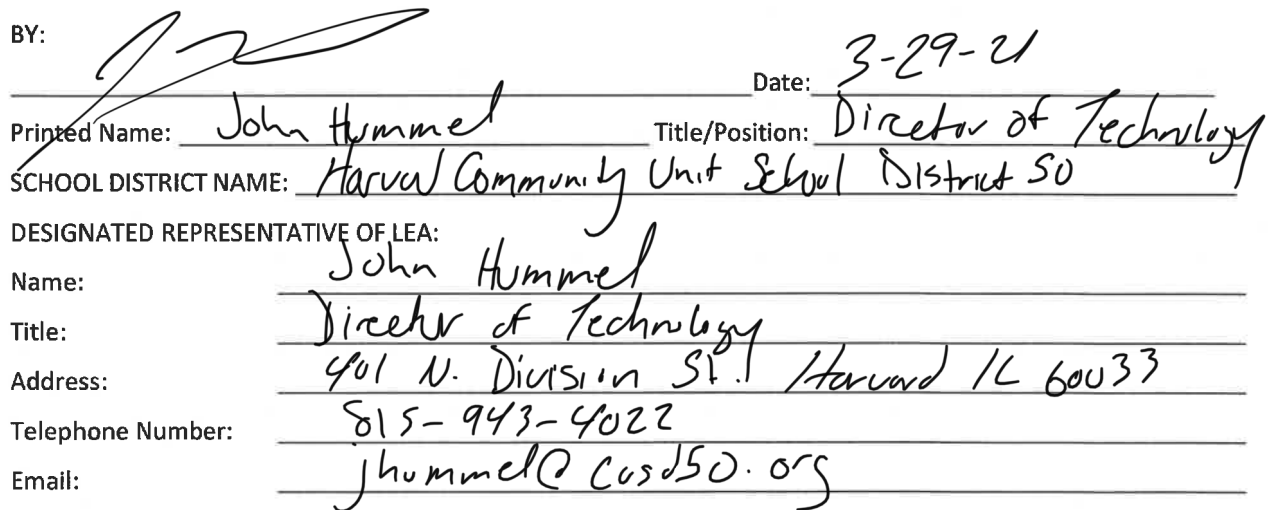 BY:
Date: 3-29-21
Printed Name: John Hummel Title/Position: Director of Technology
SCHOOL DISTRICT NAME: Harvard Community Unit School District 50
DESIGNATED REPRESENTATIVE OF LEA:
Name: John Hummel
Title: Director of Technology
Address: 401 N. Division St. Harvard IL 60033
Telephone Number: 815-943-4022
Email: jhummel@cusd50.org